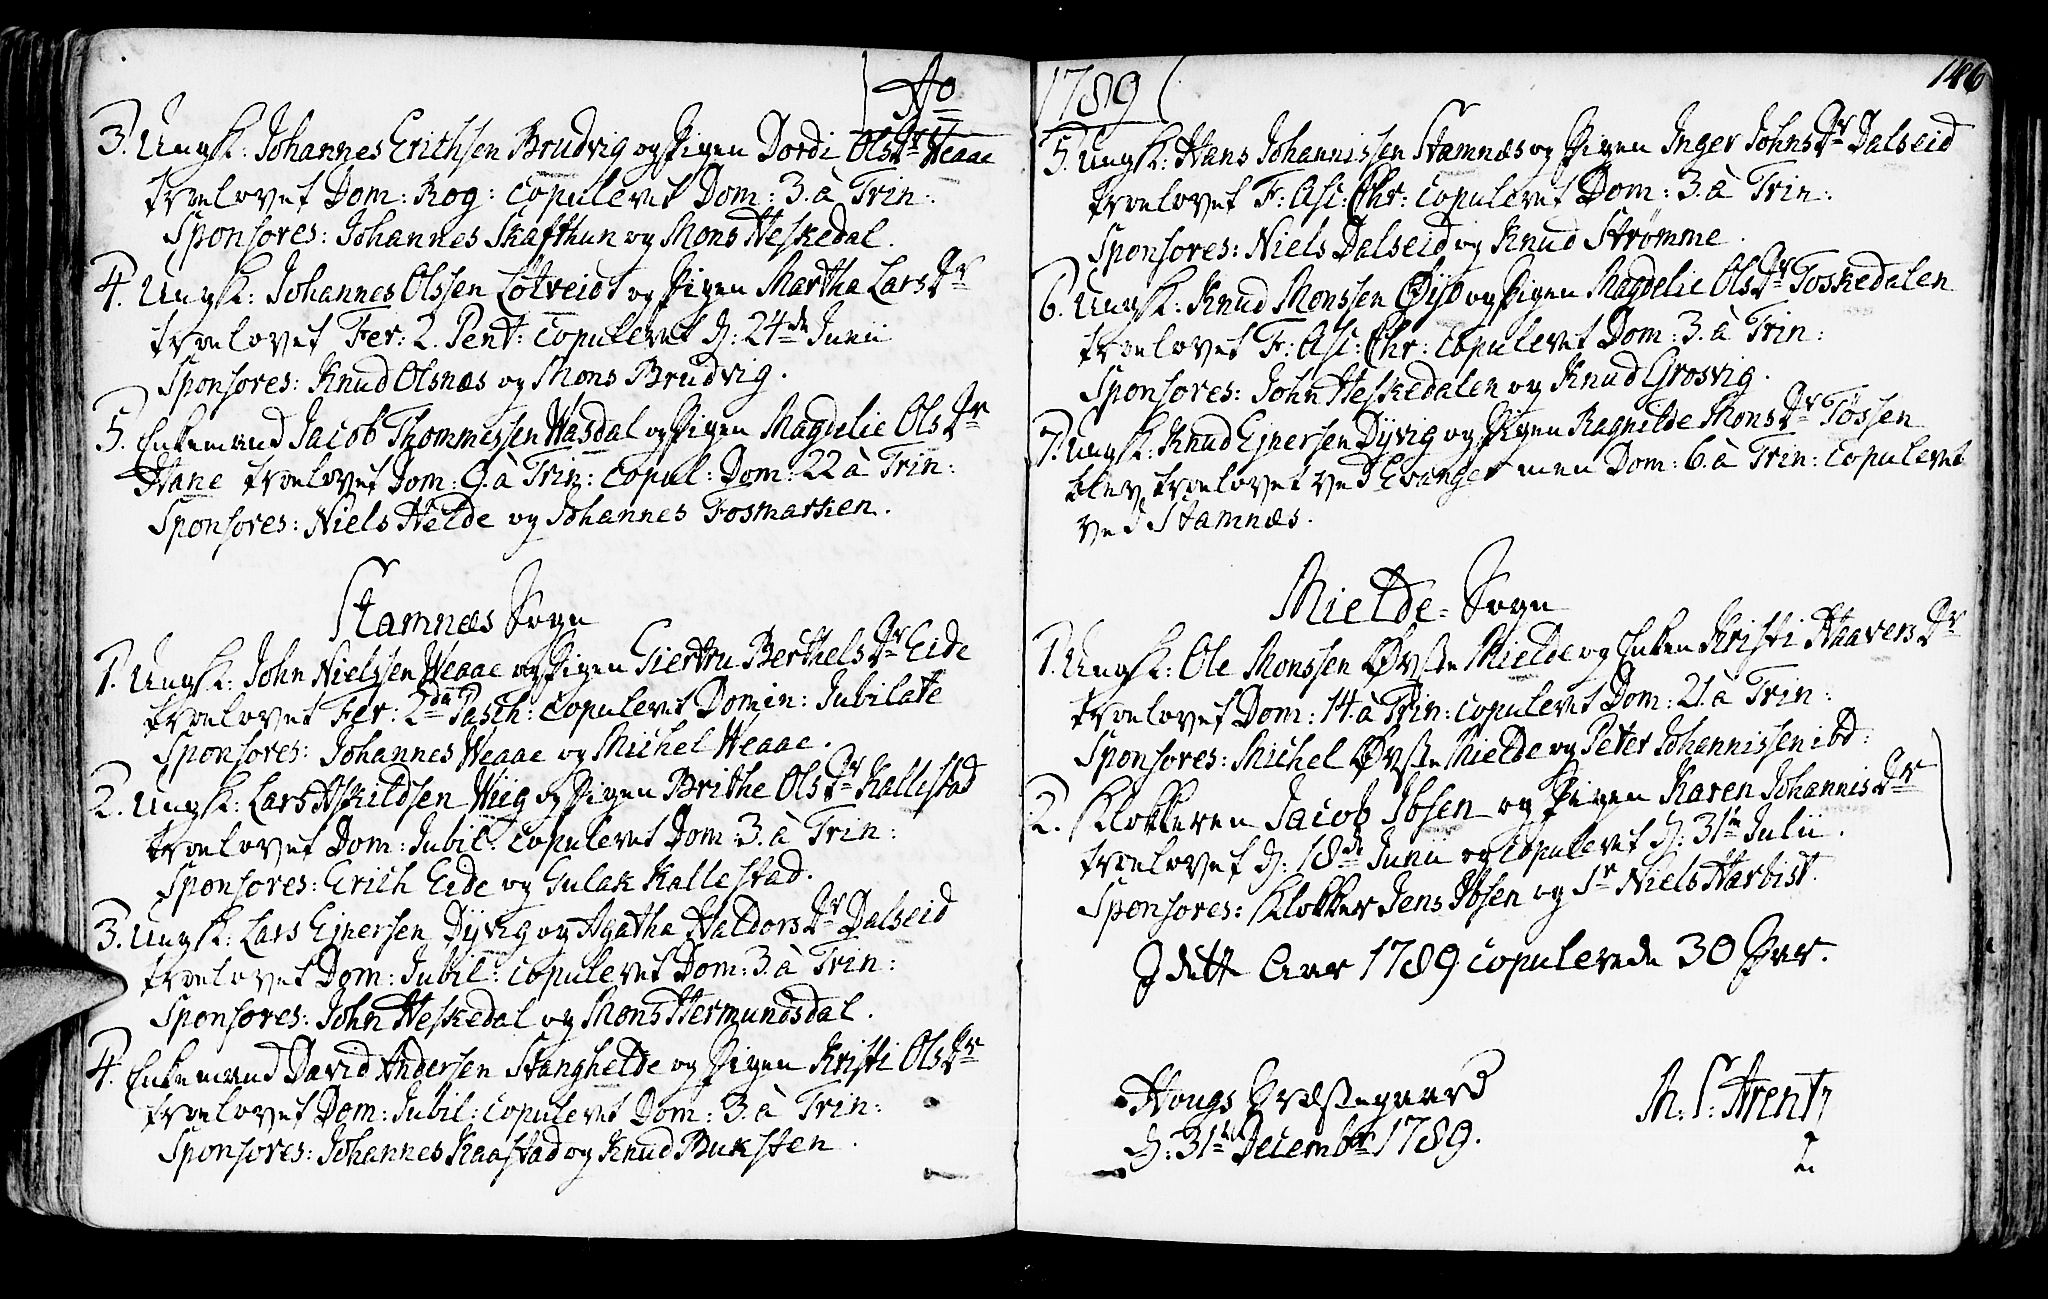 Ao
3. Ungk: Johannes Erichsen Brudvig og Pigen Dordi Olsdr Veaae
troelovet Dom: Rog: copuleret Dom: 3. à Trin:
Sponsores: Johannes Skafthun og Mons Heskedal.
4. Ungk: Johannes Olssen Lötveidt og Pigen Martha Larsdr
troelovet Fer: 2. Pent: copuleret d: 24de Junii
Sponsores: Knud Olsnæs og Mons Brudvig.
5. Enkemand Jacob Thommessen Wasdal og Pigen Magdelie Olsdr
Hane troelovet Dom: 9. à Trin: copul: Dom: 22 à Trin:
Sponsores: Niels Helde og Johannes Fosmarken.
Stamnæs Sogn
1. Ungk: John Nielssen Veaae og Pigen Giertru Berthelsdr Eide
troelovet Fer: 2da Pasch: copuleret Domin: Jubilate
Sponsores: Johannes Veaae og Michel Veaae.
2. Ungk: Lars Askildsen Wiig og Pigen Brithe Olsdr Kallestad
troelovet Dom: Jubil: copuleret Dom: 3. à Trin:
Sponsores: Erich Eide og Gulak Kallestad.
3. Ungk: Lars Ejnersen Dÿvig og Agatha Haldorsdr Dalseid
troelovet Dom: Jubil: copuleret Dom: 3. à Trin:
Sponsores: John Heskedal og Mons Hermundsdal.
4. Enkemand David Andersen Stanghelde og Pigen Kristi Olsdr
troelovet Dom: Jubil: copuleret Dom: 3. à Trin:
Sponsores: Johannes Kaastad og Knud Buksten.
1789
146
5. Ungk: Hans Johannissen Stamnæs og Pigen Inger Johnsdr Dalseid
troelovet F: Asc: Chr: copuleret Dom: 3. à Trin:
Sponsores: Niels Dalseid og Knud Strømme.
6. Ungk: Knud Monssen Øÿe og Pigen Magdelie Olsdr Toskedalen
troelovet F: Asc: Chr: copuleret Dom: 3. à Trin:
Sponsores: John Heskedalen og Knud Grosvig.
7. Ungk: Knud Ejnersen Dÿvig og Pigen Ragnilde Monsdr Tøssen
blev troelovet ved Evanger men Dom: 6. à Trin: copuleret
ved Stamnæs.
Mielde-Sogn
1. Ungk: Ole Monssen Øvste Mielde og Enken Kristi Haaversdr
troelovet Dom: 14. à Trin: copuleret Dom: 21. à Trin:
Sponsores: Michel Øvste Mielde og Peter Johannissen ibd:
2. Klokkeren Jacob Ibsen og Pigen Karen Johannisdr
troelovet d: 18de Junii og copuleret d: 31te Julii.
Sponsores: Klokker Jens Ibsen og Sr Niels Harbist.
I dette Aar 1789 copulerede 30 Par.
Hougs Præstegaard
d: 31te Decembr 1789.
M: S: Arentz